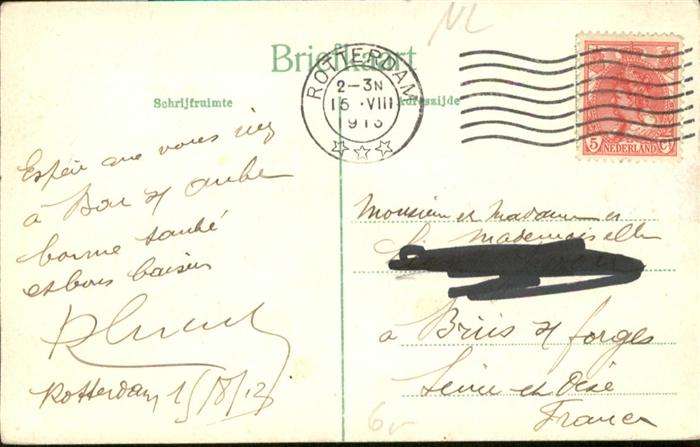 NL
Briefkaart
ROTTERDAM
2-3N
15 VIII
Schrijfruimte
Adreszijde
5 Ct
NEDERLAND
Espère que vous
à Bar s/ aube
bonne santé
et bons baisers
Rotterdam 15/8/13
Monsieur et Madame et
Mademoiselle
à Briis s/ forges
Seine et Oise
France